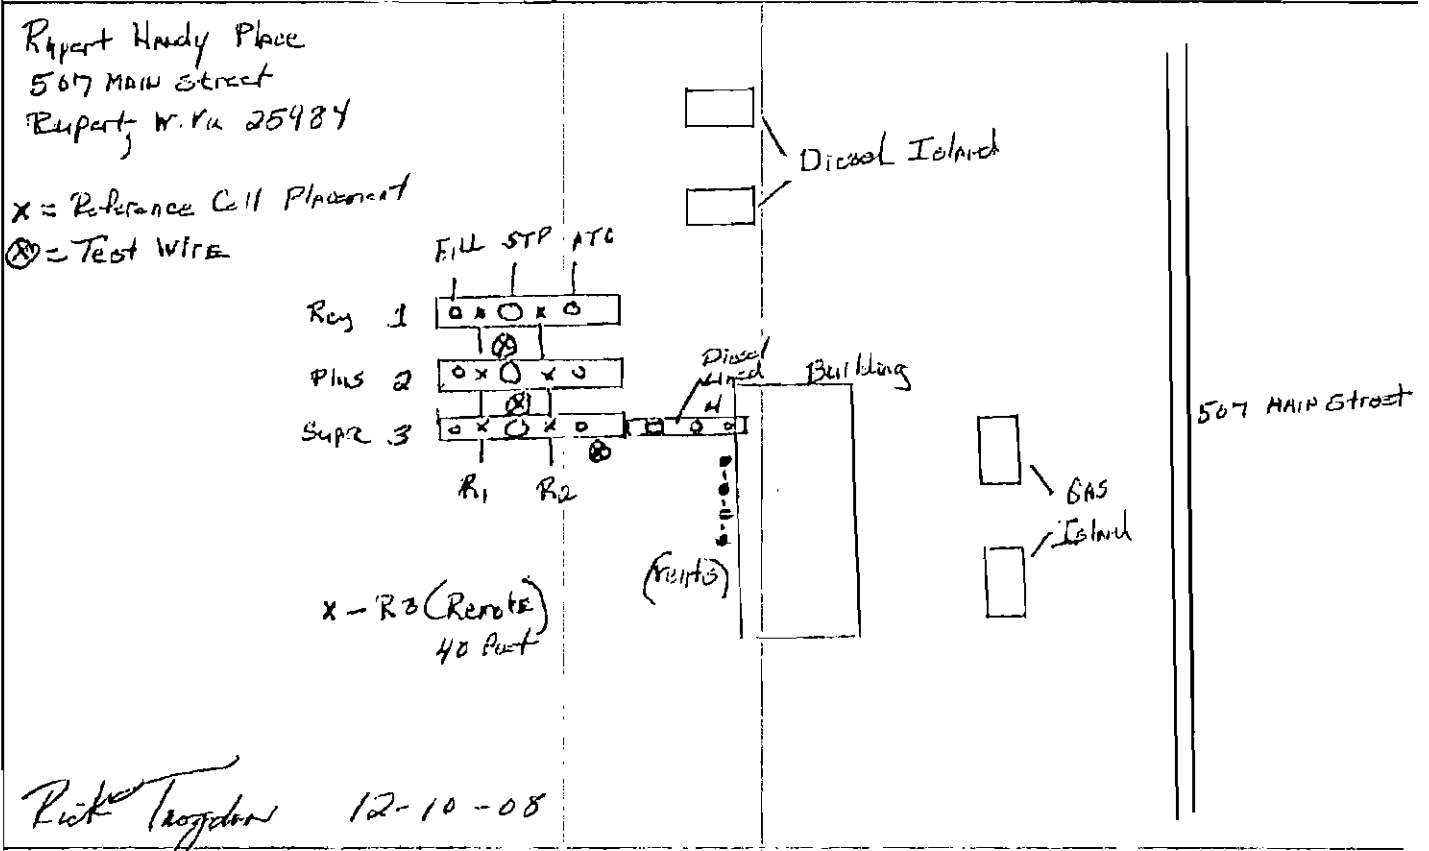 Rupert Handy Place
507 MAIN Street
Rupert, W.Va 25984
x = Reference Cell Placement
ⓧ = Test Wire
FILL STP ATG
Reg 1
Plus 2
Supr 3
R1 R2
x - R3 (Remote)
40 Feet
Diesel Island
Diesel
4
Building
(Vents)
GAS
Island
507 MAIN Street
Rick Trogdon 12-10-08